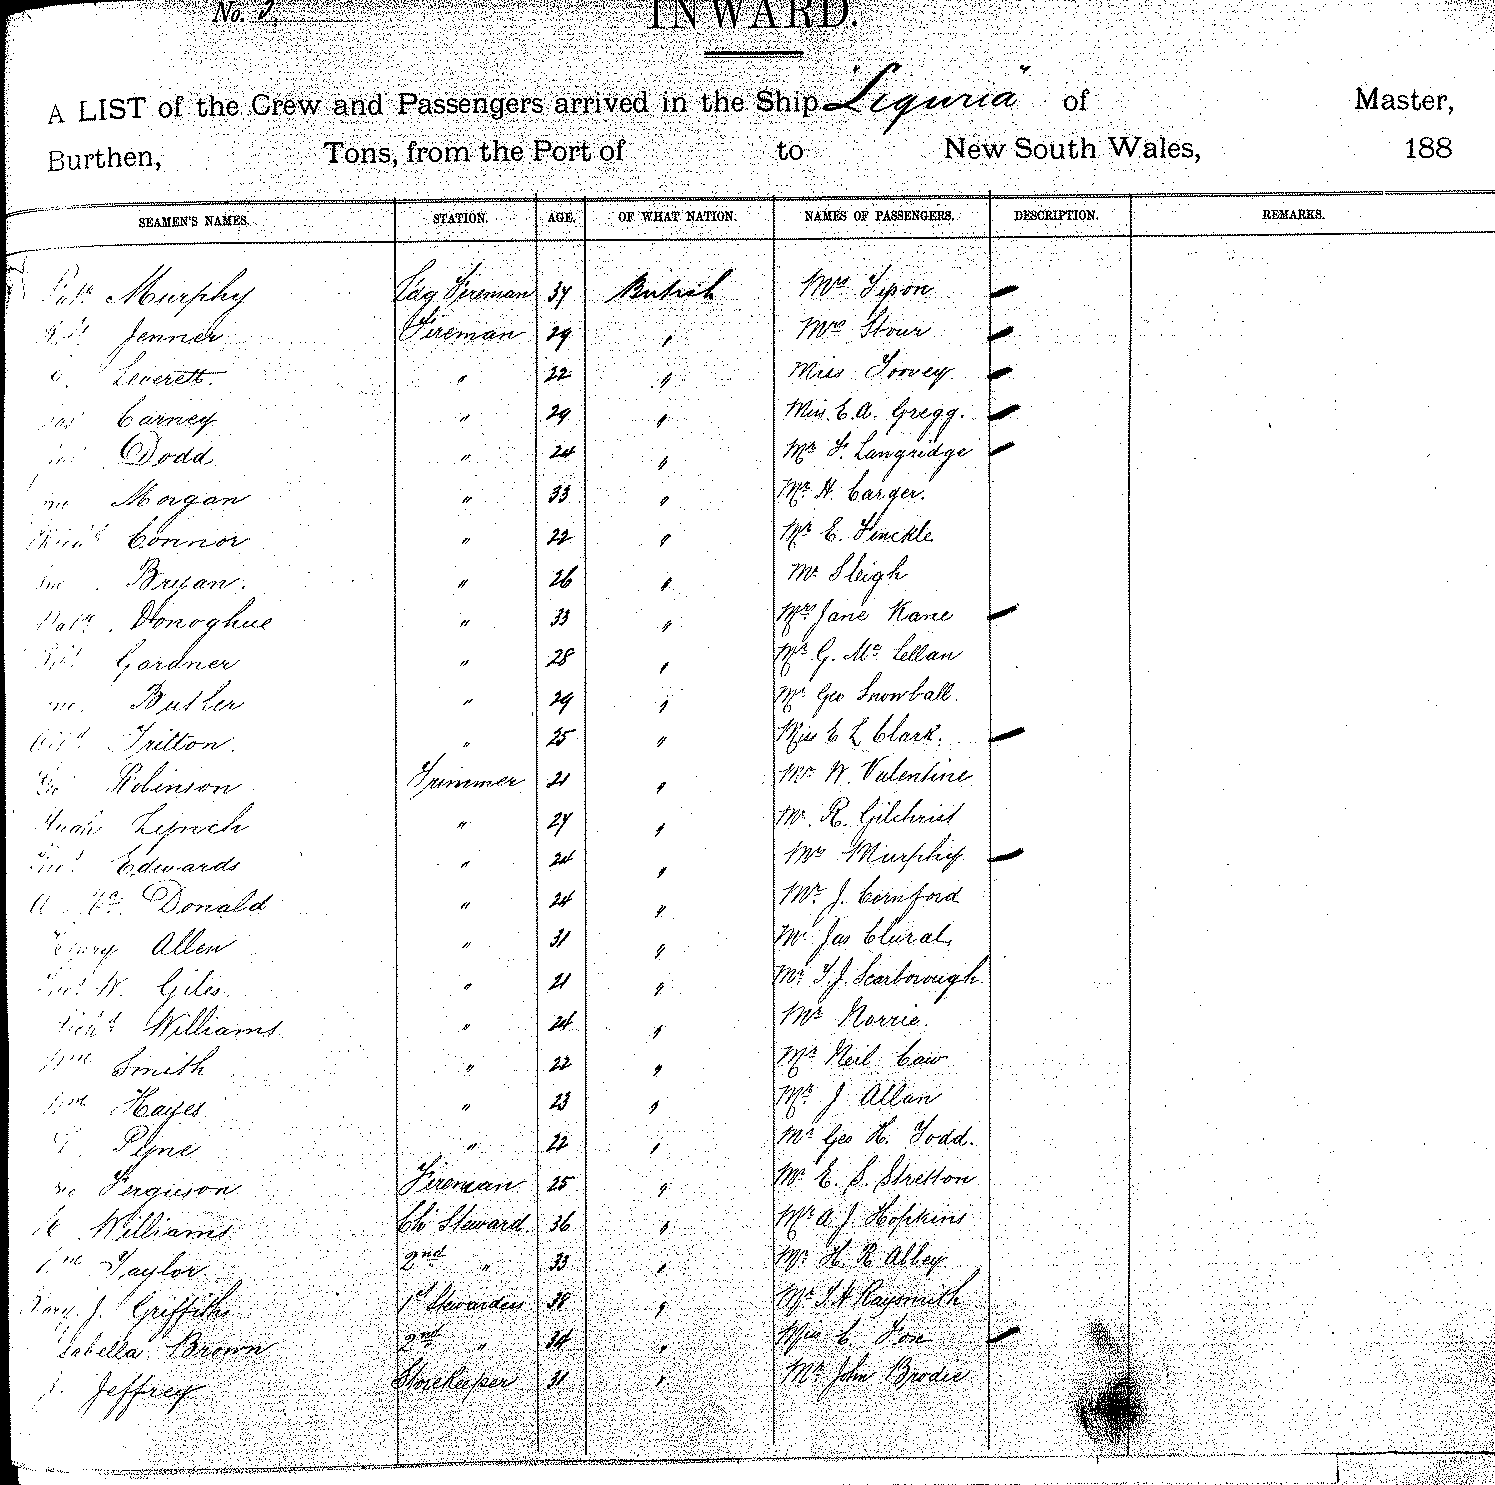 No. 3.
INWARD.
A LIST of the Crew and Passengers arrived in the Ship "Liguria" of Master,
Burthen, Tons, from the Port of to New South Wales, 188
SEAMEN'S NAMES. STATION. AGE. OF WHAT NATION. NAMES OF PASSENGERS. DESCRIPTION. REMARKS.
Patk Murphy Ldg Fireman 37 British Mrs
Jenner Fireman 29 " Mrs Stour
Leverett. " 22 " Miss Toovey
Carney " 29 " Miss E. A. Gregg.
Dodd " 24 " Mr F. Langridge
Morgan " 33 " Mr H. Carger.
Connor " 22 " Mr E. Finckle
Bryan. " 26 " Mr Sleigh
Patk Donoghue " 33 " Mrs Jane Kane
Gardner " 28 " Mr G. Mc Lellan
Butler " 29 " Mr Geo Snowball.
Tritton. " 25 " Miss C L Clark.
Robinson Trimmer 21 " Mr W. Valentine
Hugh Lynch " 27 " Mr R. Gilchrist
Edwards " 24 " Mrs Murphy
A Mc Donald " 24 " Mr J. Cornford
Henry Allen " 31 " Mr Jas
W. Giles. " 21 " Mr T. J. Scarborough
Richd Williams " 24 " Mr Norrie.
Wm Smith " 22 " Mr Neil Caw
Wm Hayes " 23 " Mr J Allan
Pyne " 22 " Mr Geo H. Todd.
Ferguson Fireman 25 " Mr E. S. Stretton
Williams Ch Steward 36 " Mr A. J. Hopkins
Wm Taylor 2nd " 33 " Mr H. R Abbey
Mary J. Griffiths 1st Stewardess 38 " Mr S. H Raysmith
Isabella Brown 2nd " 34 " Miss C. Fox
Jeffrey Storekeeper 31 " Mr John Brodie